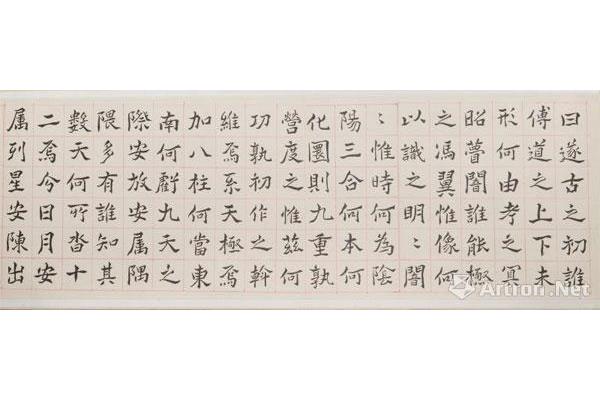 曰遂古之初誰
傳道之上下未
形何由考之冥
昭瞢闇誰能極
之馮翼惟像何
以識之明〻闇
〻惟時何為陰
陽三合何本何
化圜則九重孰
營度之惟茲何
功孰初作之斡
維焉系天極焉
加八柱何當東
南何虧九天之
際安放安属隅
隈多有誰知其
數天何所沓十
二焉今日月安
属列星安陳出
Artron.Net